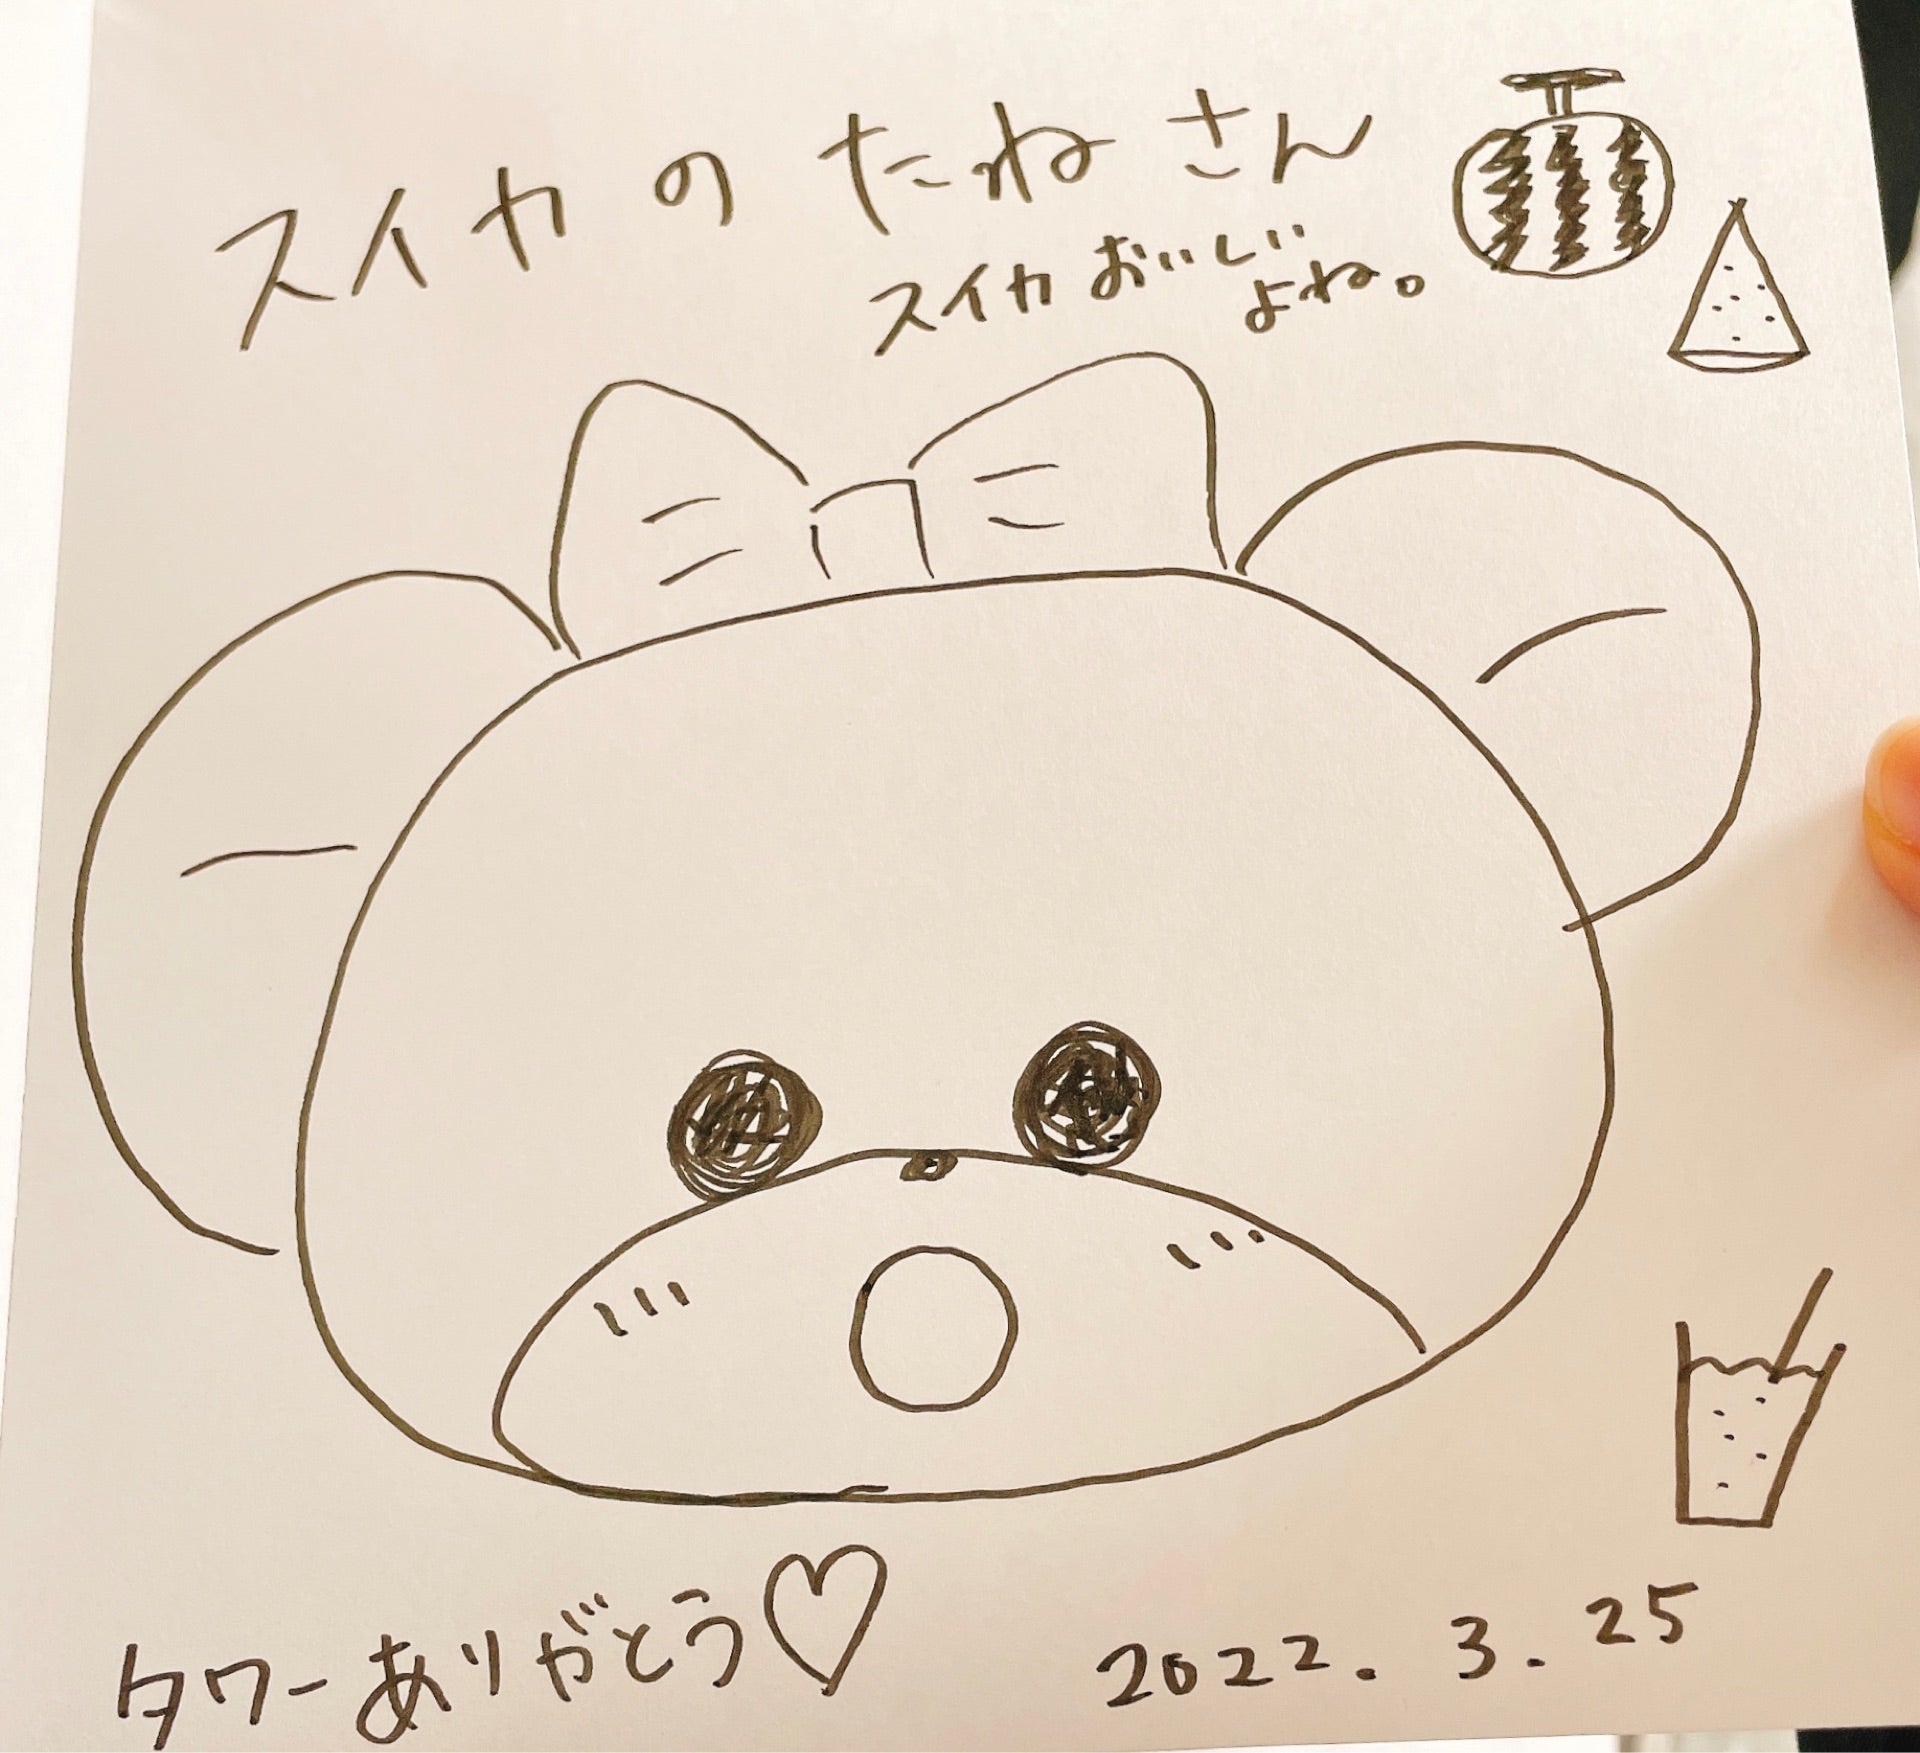 スイカのたねさん
スイカおいしい
よね。
タワーありがとう♡
2022.3.25